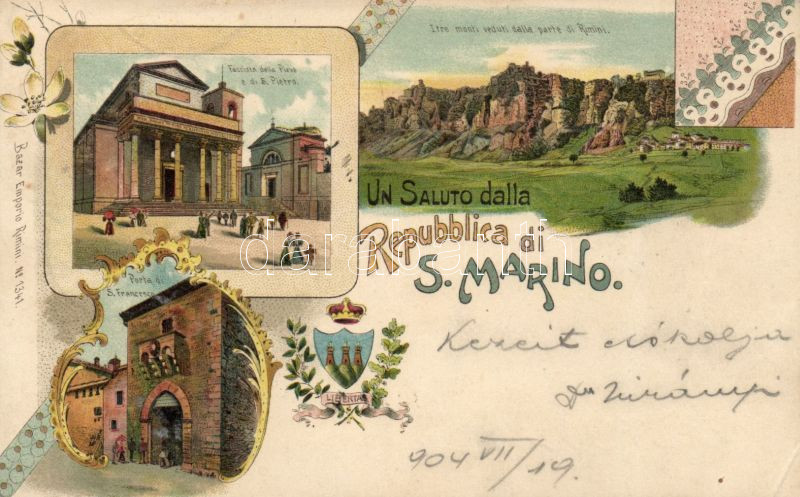 Facciata della Pieve
e di S. Pietro.
I tre monti veduti dalla parte di Rimini.
Un Saluto dalla
Repubblica di
S. Marino.
Porta di
S. Francesco
Bazar Emporio Rimini. No 1341.
LIBERTAS
Kezeit csókolja
904 VII/19.
darabanth